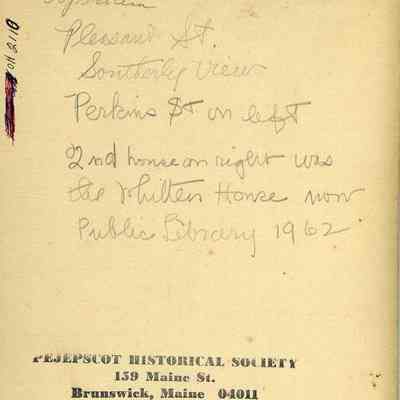 Topsham
Pleasant St.
Southerly View
Perkins St on left
2nd house on right was
the Whitten House now
Public Library 1962
OH 2110
PEJEPSCOT HISTORICAL SOCIETY
159 Maine St.
Brunswick, Maine 04011